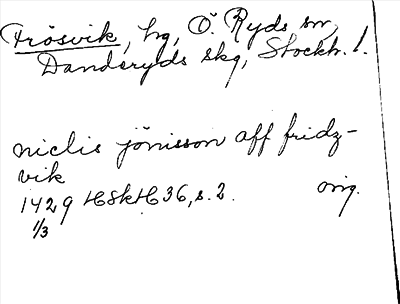 Frösvik, hg, Ö. Ryds sn,
Danderyds skg, Stockh. l.
niclis jönisson aff fridz-
vik
1429 HSkH 36, s. 2. orig.
1/3